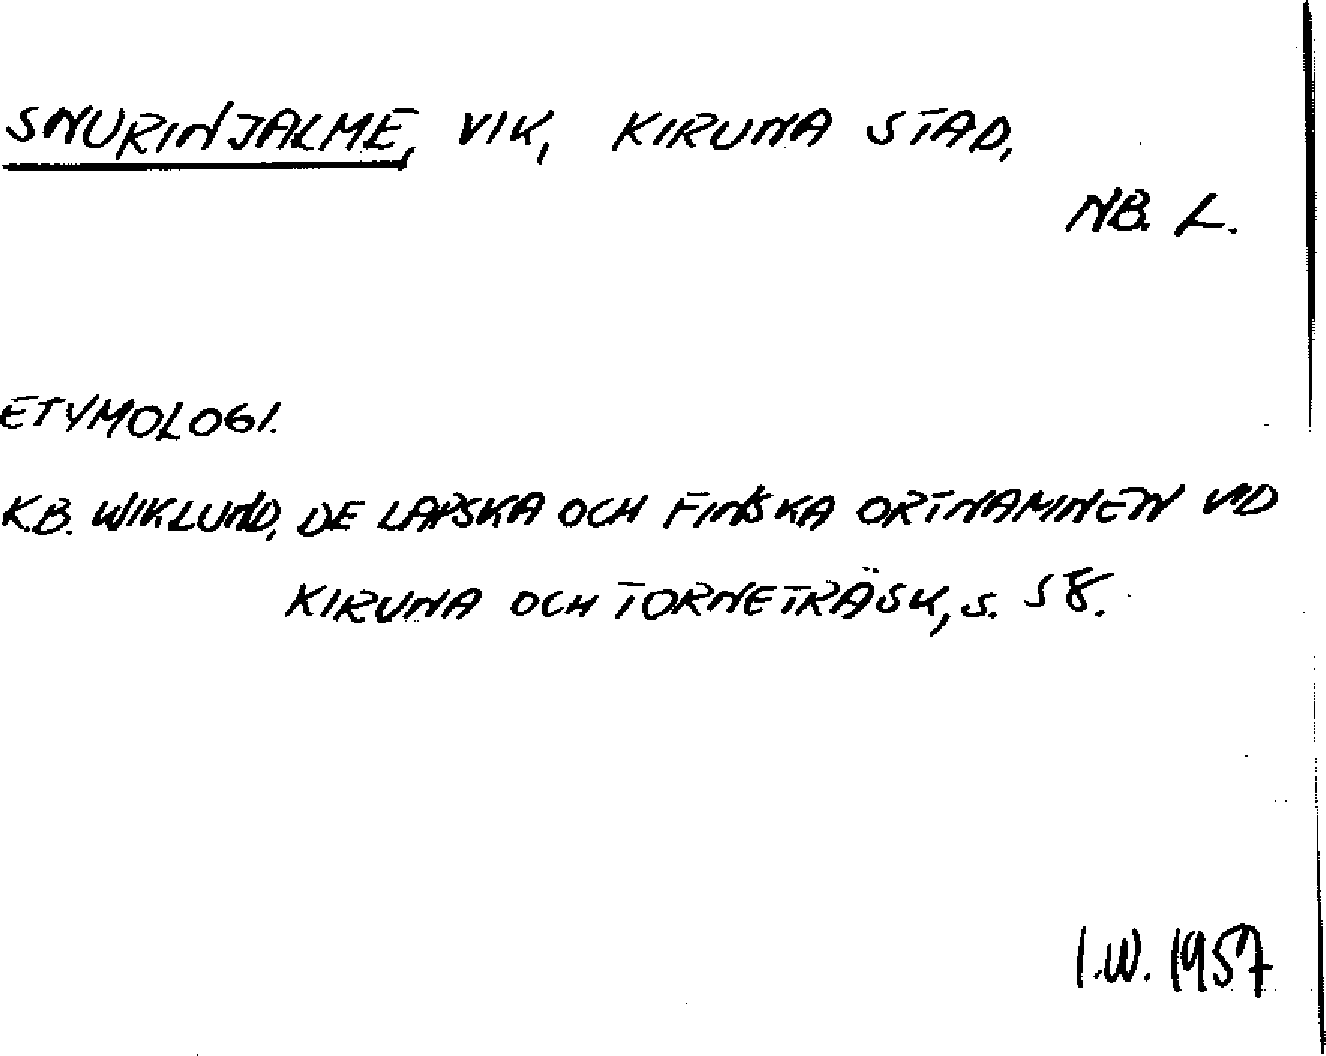 SNURINJALME, VIK, KIRUNA STAD,
NB. L.
ETYMOLOGI.
K.B. WIKLUND, DE LAPSKA OCH FINSKA ORTNAMNEN VID
KIRUNA OCH TORNETRÄSK, s. 58.
I.W. 1957